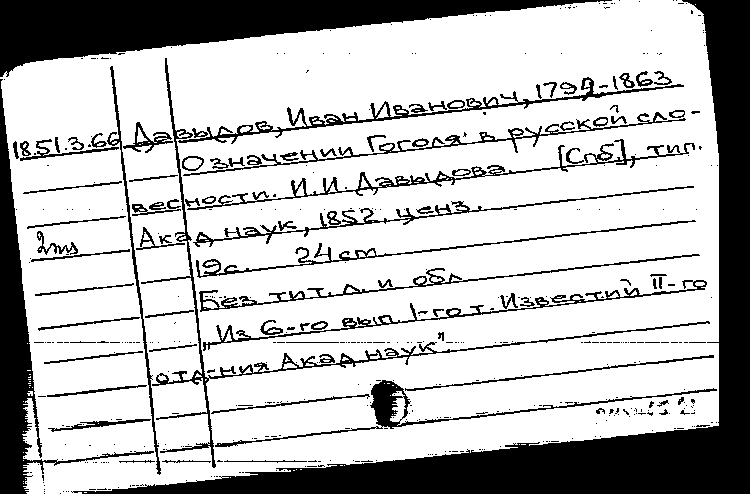 18.51.3.66 Давыдов, Иван Иванович, 1792-1863
О значении Гоголя в русской сло-
весности. И.И. Давыдова. [Спб.], тип.
Акад наук, 1852. ценз.
19с. 24 cm
Без тит. л. и обл
„Из 6-го вып. 1-го т. Известий II-го
отд-ния Акад наук".